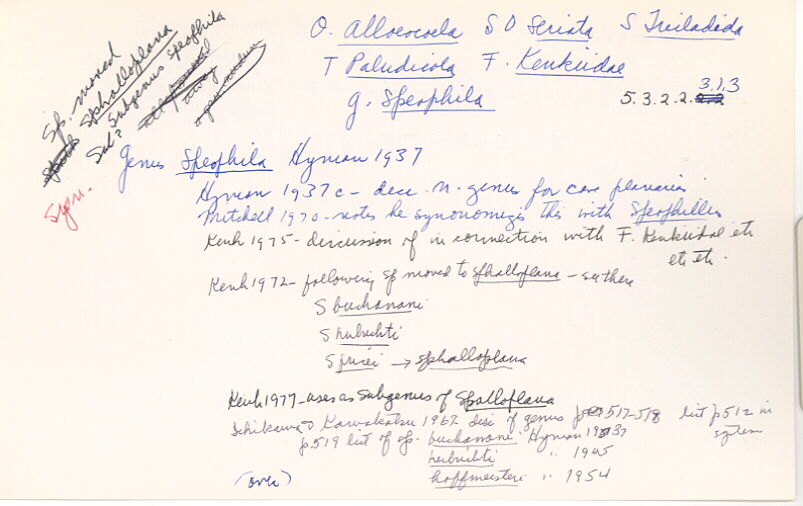 O. Alloeocoela S O Seriata S Tricladida
T Paludicola F. Kenkiidae
g. Speophila 5.3.2.2. 3.1.3
Sp. moved
Sphalloplana
Sub? Subgenus Speophila
Syn.
Genus Speophila Hyman 1937
Hyman 1937c - desc. n. genus for cave planarias
Mitchell 1970 - notes he synonomizes this with Speophila
Kenk 1975 - discussion of in connection with F. Kenkiidae etc
etc etc.
Kenk 1972 - following sp moved to Sphalloplana - see there
S buchanani
S hubrichti
S pricei → Sphalloplana
Kenk 1977 - uses as Subgenus of Spalloplana
Ichikawa & Kawakatsu 1967 disc of genus p 517-518 list p512 in
system
p519 list of sp. buchanani Hyman 1937
hubrichti " 1945
hoffmeisteri " 1954
(over)